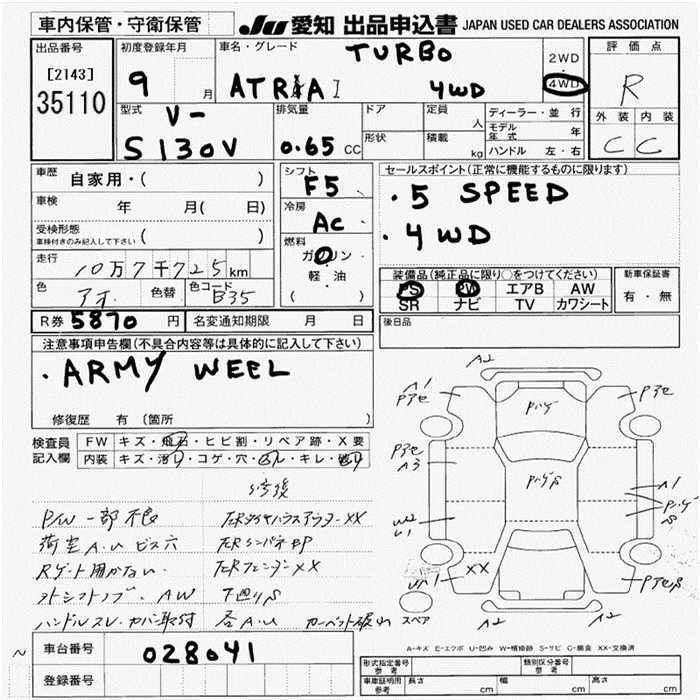 車内保管・守衛保管
JU 愛知 出品申込書 JAPAN USED CAR DEALERS ASSOCIATION
出品番号
[2143]
35110
初度登録年月
9 月
車名・グレード
TURBO
ATRAI 4WD
2WD
・
4WD
評価点
R
外装 内装
C C
型式
V-
S130V
排気量
0.65 CC
ドア
形状
定員
人
積載
kg
ディーラー・並行
モデル年式 年
ハンドル 左・右
車歴
自家用・( )
車検
年 月( 日)
受検形態
車検付きのみ記入して下さい ( )
走行
10万7千725km
色
アオ
色替
色コード
B35
シフト
F5
冷房
AC
燃料
ガソリン
・
軽油
( )
セールスポイント(正常に機能するものに限ります)
・5 SPEED
・4WD
装備品(純正品に限り○をつけてください)
PS PW エアB AW
SR ナビ TV カワシート
新車保証書
有・無
R券 5870 円
名変通知期限 月 日
後日品
注意事項申告欄(不具合内容等は具体的に記入して下さい)
・ARMY WEEL
修復歴 有 (箇所 )
検査員
記入欄
FW キズ・飛石・ヒビ割・リペア跡・X要
内装 キズ・汚レ・コゲ・穴・スレ・キレ・破レ
修後
P/W 一部不良
荷室A.U ビス穴
Rゲート開かない
シフトノブ. AW 下廻りS
ハンドルスレ.カバー取付 各A.U カーペット破れ
A2
A1
Pアセ
Pアセ
Pハゲ
Pアセ
A3
PハゲS
A1
PハゲS
W2
U1
XX
PアセS
スペア
A2
A2
A-キズ E-エクボ U-凹み W-補修跡 S-サビ C-腐食 XX-交換済
車台番号
028041
登録番号
形式指定番号
参考
類別区分番号
参考
車庫証明用
参考
長さ cm
幅 cm
高さ cm